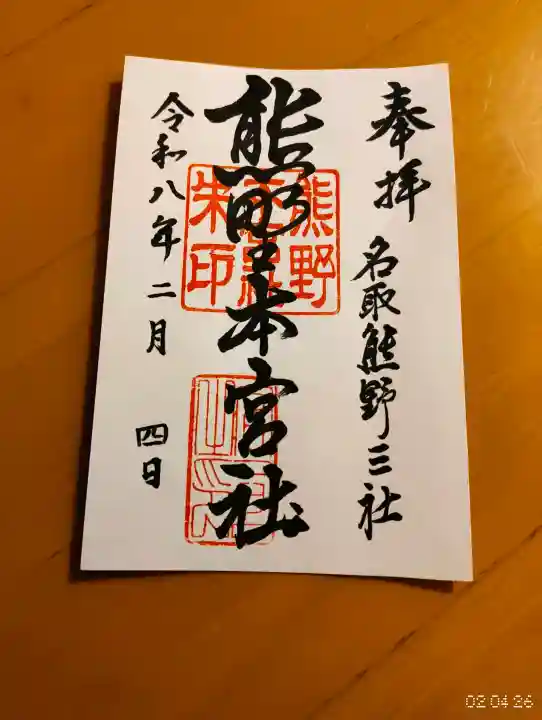 奉拝
名取熊野三社
熊野本宮社
令和八年二月 四日
熊野
朱印
02 04 26